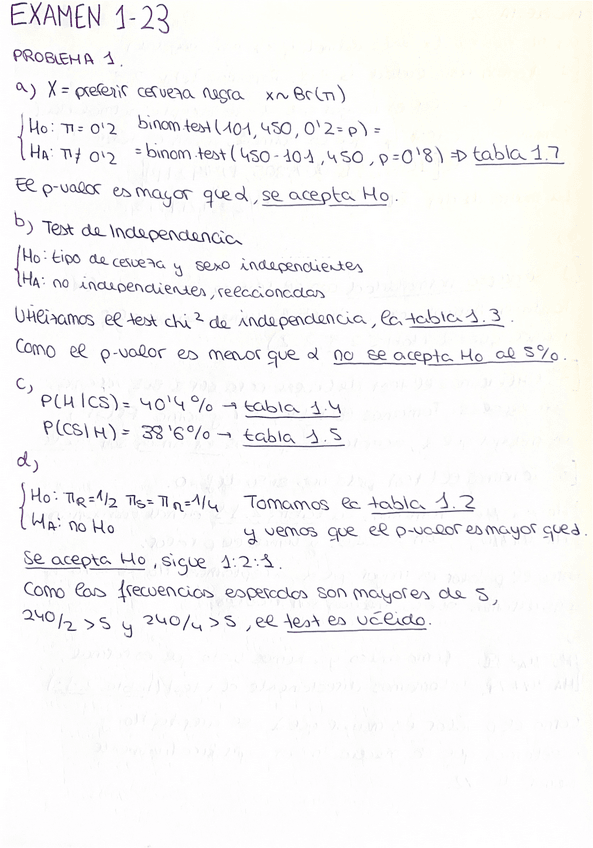 EXAMEN 1-23
PROBLEMA 1.
a) X = preferir cerveza negra x~Br(π)
H0: π = 0'2 binom test (101, 450, 0'2=p) =
HA: π ≠ 0'2 = binom.test (450-101, 450, p=0'8) => tabla 1.7
El p-valor es mayor que α, se acepta H0.
b) Test de Independencia
H0: tipo de cerveza y sexo independientes
HA: no independientes, relacionadas
Utilizamos el test chi² de independencia, la tabla 1.3.
Como el p-valor es menor que α no se acepta H0 al 5%.
c)
P(H|CS) = 40'4% → tabla 1.4
P(CS|H) = 38'6% → tabla 1.5
d)
H0: πR=1/2 πS=πn=1/4 Tomamos la tabla 1.2
HA: no H0 y vemos que el p-valor es mayor que α.
Se acepta H0, sigue 1:2:1.
Como las frecuencias esperadas son mayores de 5,
240/2 >5 y 240/4 >5, el test es válido.